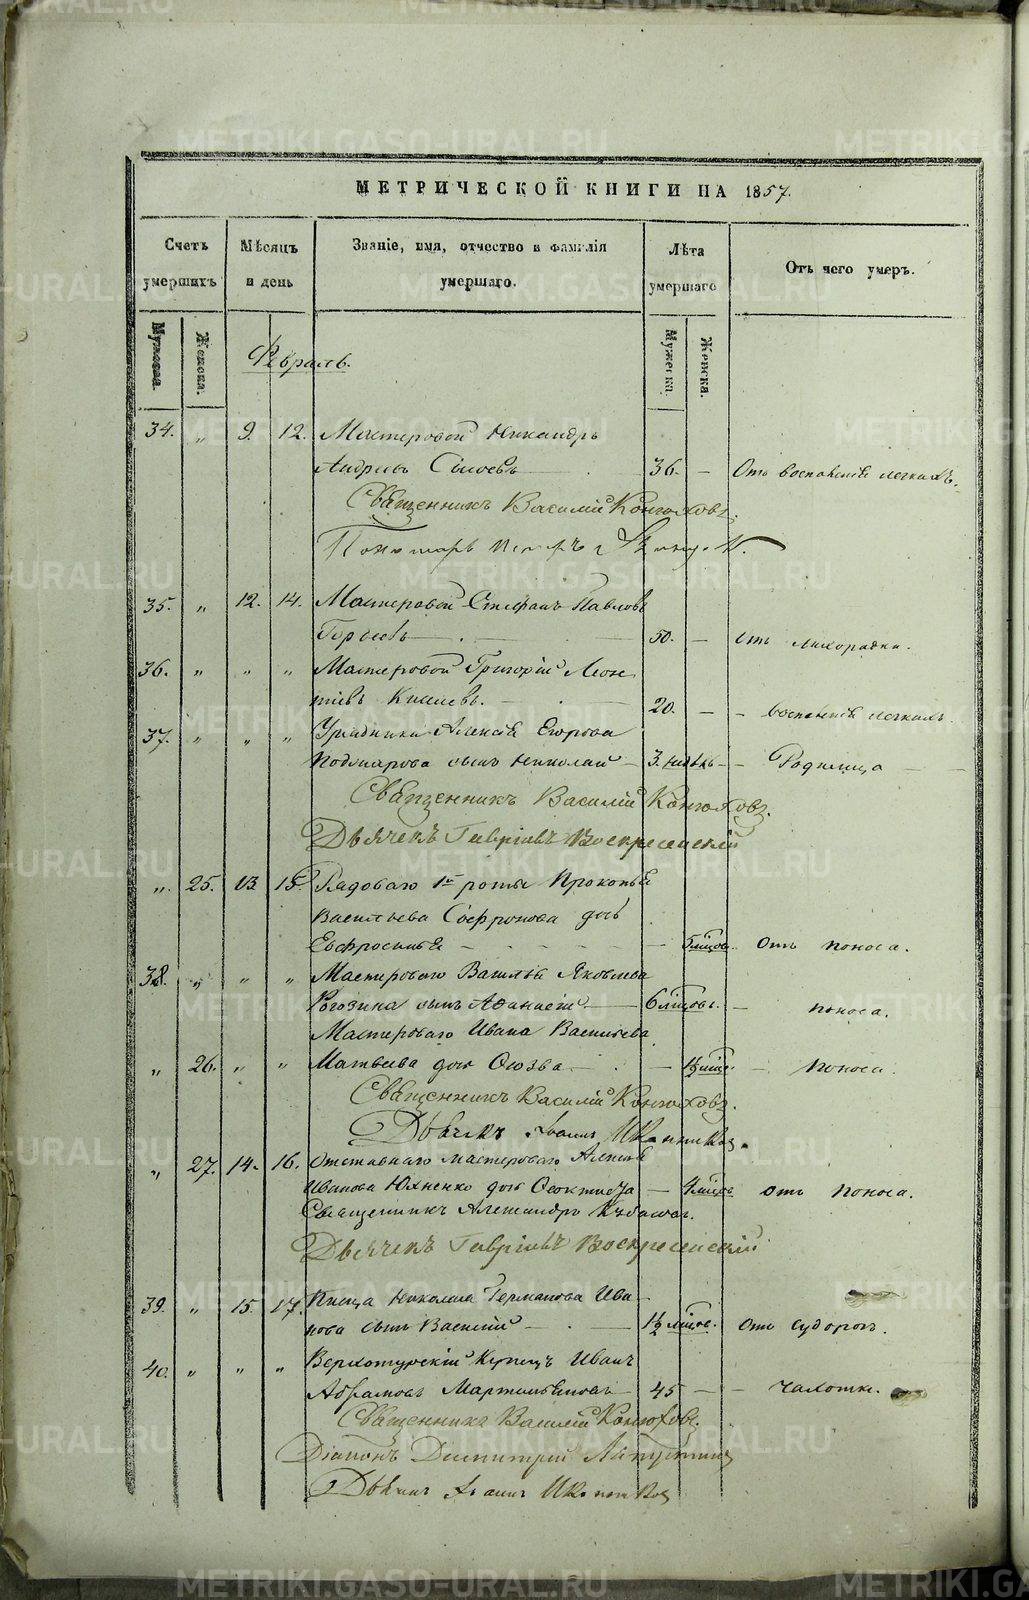 МЕТРИЧЕСКОЙ КНИГИ НА 1857.
Счетъ умершихъ
Мѣсяцъ и день
Званіе, имя, отчество и фамилія умершаго.
Лѣта умершаго
Отъ чего умеръ.
Мужеска. Женска.
Мужеска. Женска.
Февраль.
34. „ 9. 12. Мастеровой Никандръ
Андреевъ 36. — Отъ воспаленія легкихъ.
Священникъ Василій Конюховъ.
Пономарь
35. „ 12. 14. Мастеровой Стефанъ Павловъ
50. — отъ лихорадки.
36. „ „ „ Мастеровой Григорій Леон
тіевъ 20. — — воспаленія легкихъ.
37. „ „ „ Урядника Алексія Егорова
Пономарова сынъ Николай — 3. недѣль — Родимца —
Священникъ Василій Конюховъ.
Дьячекъ Гавріилъ Воскресенскій
„ 25. 13. 15. Рядоваго 1й роты Прокопія
Васильева Софронова дочь
Евфросинія — 5 мѣсяцов. Отъ поноса.
38. „ „ „ Мастероваго Василья Яковлева
Рогозина сынъ Афанасій — 6 мѣсяцовъ. — поноса.
Мастероваго Ивана Васильева
„ 26. „ „ Матвеева дочь — — поноса.
Священникъ Василій Конюховъ.
Дьячекъ Иконниковъ.
„ 27. 14. 16. Отставнаго мастероваго Алексія
Иванова Юхненко дочь — отъ поноса.
Священникъ Александръ
Дьячекъ Гавріилъ Воскресенскій
39. „ 15. 17. Писца Николая Германова Ива-
нова сынъ Василій — 1½ мѣсяцов. Отъ судорогъ.
40. „ „ „ Верхотурскій купецъ Иванъ
Абрамовъ 45 — — чахотки.
Священникъ Василій Конюховъ.
Діаконъ Димитрій
Дьячекъ Иконниковъ
METRIKI.GASO-URAL.RU